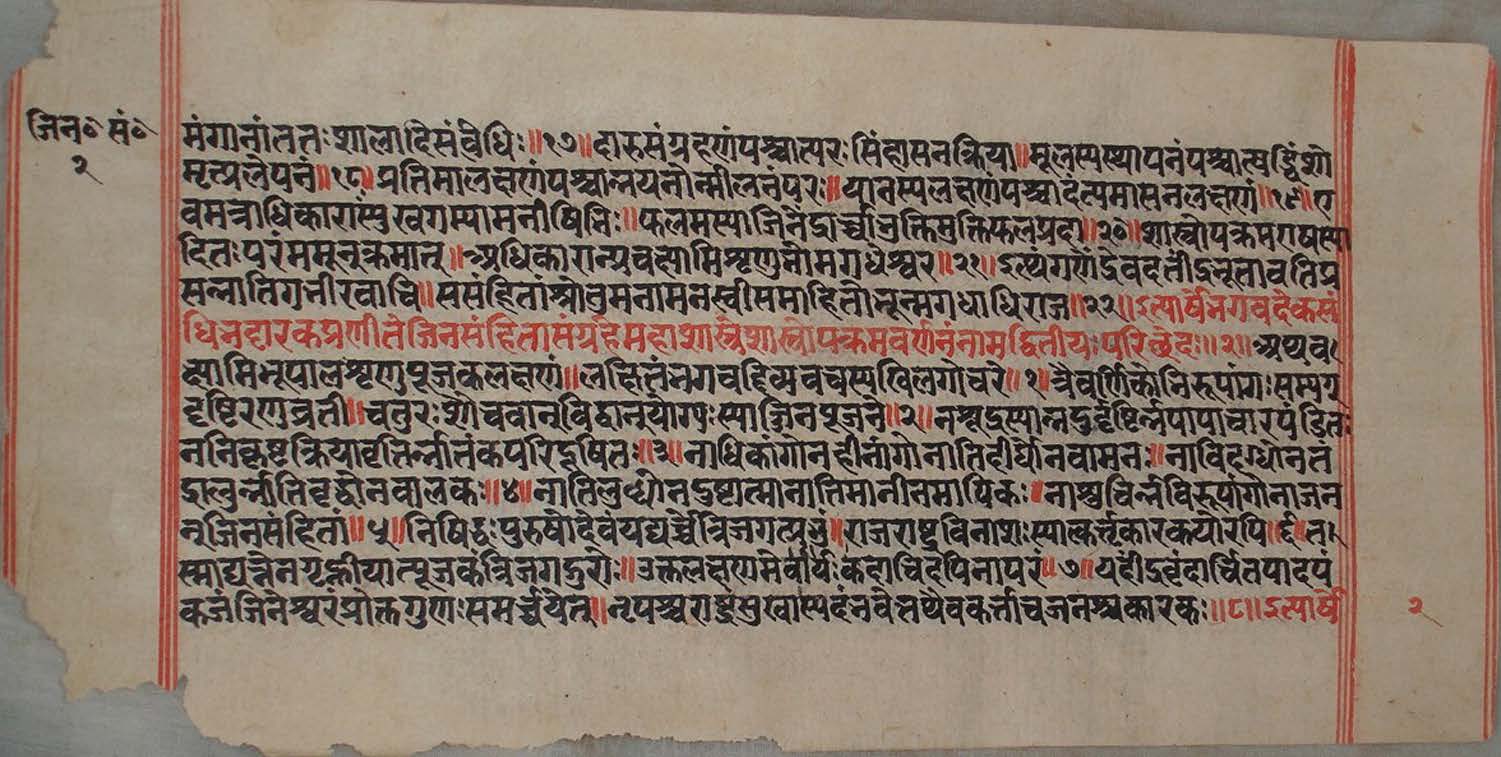 जिन॰ सं॰
२
मंगानां ततः शालादिसंविधिः ॥१७॥ दारुसंग्रहणं पश्चात्परः सिंहासनक्रिया ॥ मूलस्य स्थापनं पश्चात्
मृत्प्रलेपनं ॥१८॥ प्रतिमालक्षणं पश्चान्नयनोन्मीलनं परः ॥ लक्षणं पश्चा लक्षणं ॥१९॥ ए
वमत्राधिकारां मनीषिभिः ॥ फलमस्या जिनेंद्रार्च्चा भुक्तिमुक्तिफलप्रदा ॥२०॥
दितः परं ॥ अधिकारान्प्रवक्ष्यामि शृणु मगधेश्वर ॥२१॥ इत्थं
सन्नातिगभीरवाचि ॥ स संहितां श्रोतुमना मनस्वी समाहितोभून्मगधाधिराजः ॥२२॥ इत्यार्षे भगवदेकसं
धिभट्टारकप्रणीते जिनसंहितासंग्रहे महाशास्त्रे शास्त्रोपक्रमवर्णनं नाम द्वितीयः परिच्छेदः ॥२॥ अथ व
क्ष्यामि भूपाल शृणु पूजकलक्षणं ॥ लक्षितं भगवद्दिव्यवचस्यखिलगोचरे ॥१॥ त्रैवर्णिकोभिरूपांगः सम्यग्
दृष्टिरणुव्रती ॥ चतुरः शौचवान्विद्वान् योग्यः स्याज्जिनपूजने ॥२॥ न शूद्रः स्यान्न दुर्दृष्टिर्न पापाचारपंडितः
न निकृष्टक्रियावृत्तिर्न्नातंकपरिदूषितः ॥३॥ नाधिकांगो न हीनांगो नातिदीर्घो न वामनः ॥ नाविदग्धो न तं
द्रालुर्न्नातिवृद्धो न बालकः ॥४॥ नातिलुब्धो न दुष्टात्मा नातिमानी न मायिकः ॥ नाशुचिर्न्न विरूपांगो नाजन
न् जिनसंहितां ॥५॥ निषिद्धः पुरुषो देवं यद्यर्च्चेत्रिजगत्प्रभुं ॥ राजराष्ट्रविनाशः स्यात्कर्त्तृकारकयोरपि ॥६॥ त
स्माद्यत्नेन गृह्णीयात्पूजकं त्रिजगद्गुरोः ॥ उक्तलक्षणमेवार्यः कदाचिदपि नापरं ॥७॥ यदींद्रवृंदार्चितपादपं
कजं जिनेश्वरं प्रोक्तगुणः समर्च्चयेत् ॥ नृपश्च राष्ट्रं च सुखास्पदं भवेत्तथैव कर्त्ता च जनश्च कारकः ॥८॥ इत्यार्षे
२